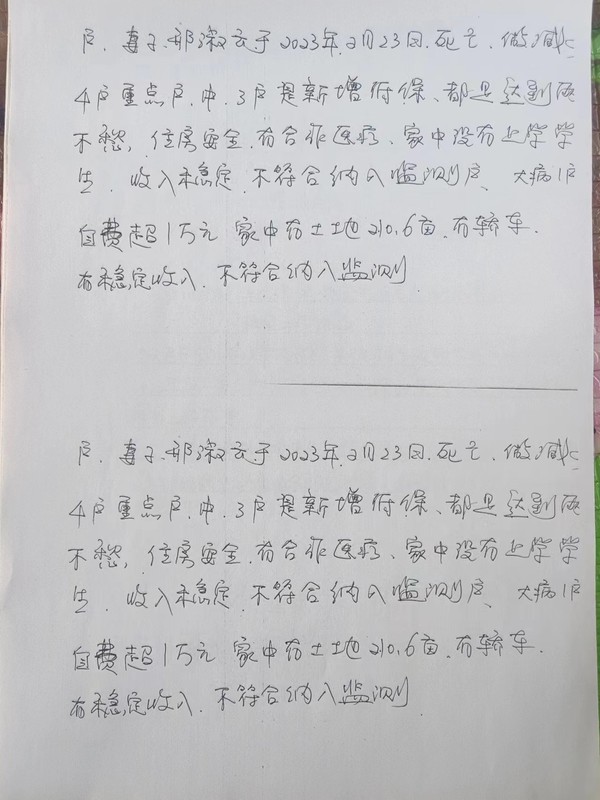 户、妻子邢淑云于2023年2月23日死亡、做减
4户重点户中、3户是新增低保、都是达到
不愁, 住房安全、有合作医疗、家中没有上学学
生、收入稳定、不符合纳入监测户、大病1户
自费超1万元 家中有土地210.6亩、有轿车、
有稳定收入、不符合纳入监测
户、妻子邢淑云于2023年2月23日死亡、做减
4户重点户中、3户是新增低保、都是达到
不愁, 住房安全、有合作医疗、家中没有上学学
生、收入稳定、不符合纳入监测户、大病1户
自费超1万元 家中有土地210.6亩、有轿车、
有稳定收入、不符合纳入监测